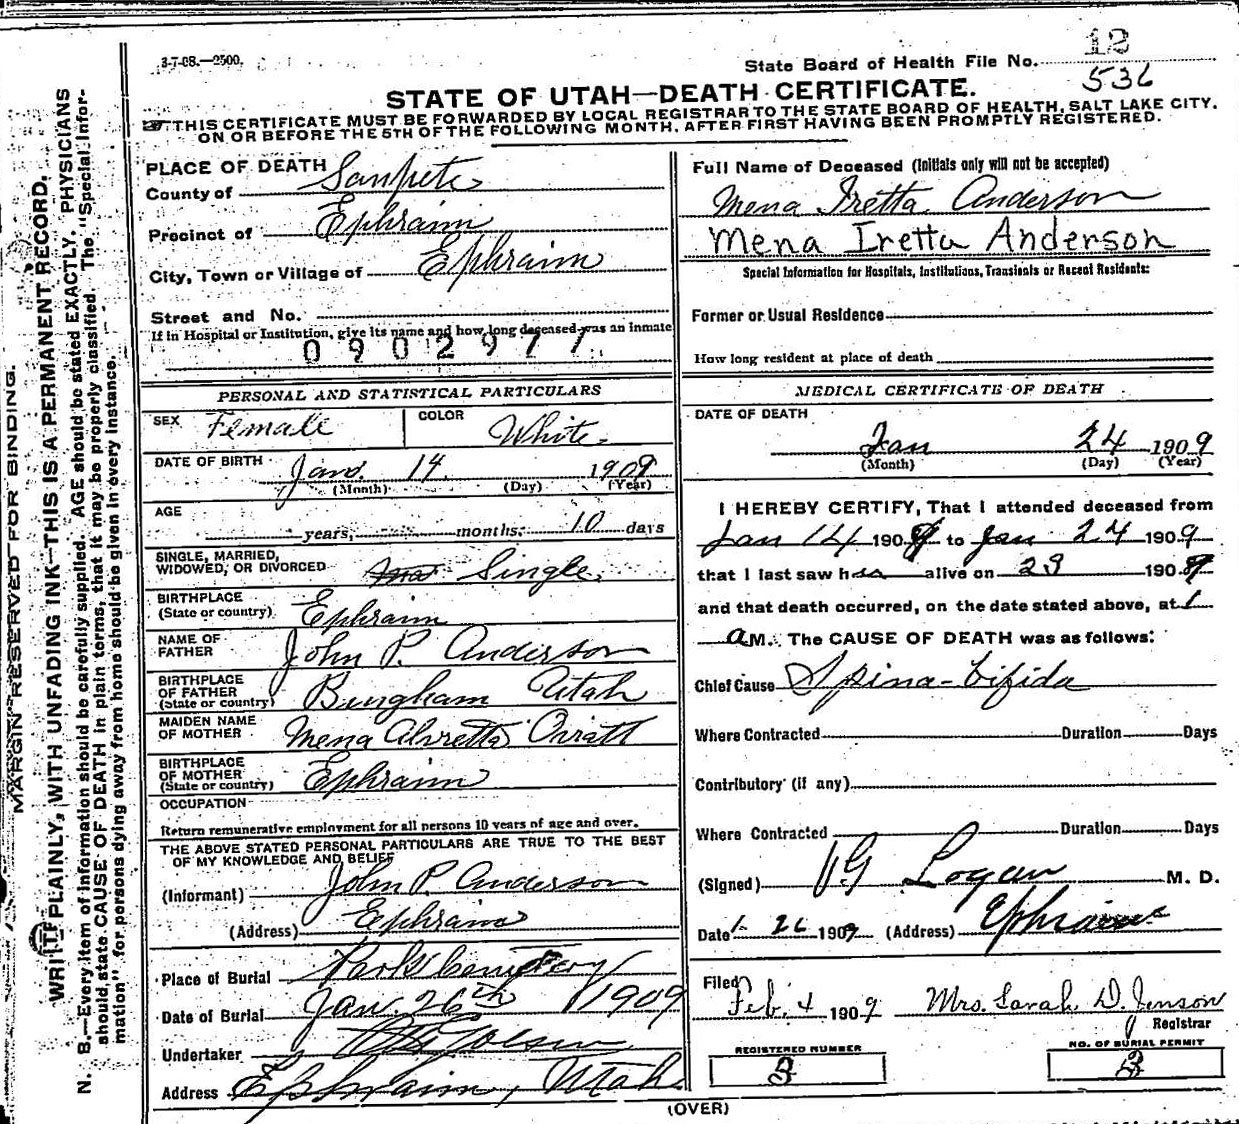 3-7-08.—2500.
State Board of Health File No. 12
536
STATE OF UTAH—DEATH CERTIFICATE.
THIS CERTIFICATE MUST BE FORWARDED BY LOCAL REGISTRAR TO THE STATE BOARD OF HEALTH, SALT LAKE CITY,
ON OR BEFORE THE 5TH OF THE FOLLOWING MONTH, AFTER FIRST HAVING BEEN PROMPTLY REGISTERED.
MARGIN RESERVED FOR BINDING.
WRITE PLAINLY, WITH UNFADING INK—THIS IS A PERMANENT RECORD.
N. B.—Every item of information should be carefully supplied. AGE should be stated EXACTLY. PHYSICIANS
should state CAUSE OF DEATH in plain terms, that it may be properly classified. The "Special Infor-
mation" for persons dying away from home should be given in every instance.
PLACE OF DEATH
County of Sanpete
Precinct of Ephraim
City, Town or Village of Ephraim
Street and No.
If in Hospital or Institution, give its name and how long deceased was an inmate
0902977
PERSONAL AND STATISTICAL PARTICULARS
SEX Female COLOR White
DATE OF BIRTH Jan 14 1909
(Month) (Day) (Year)
AGE
years, months, 10 days
SINGLE, MARRIED,
WIDOWED, OR DIVORCED Single
BIRTHPLACE
(State or country) Ephraim
NAME OF
FATHER John P. Anderson
BIRTHPLACE
OF FATHER
(State or country) Bingham Utah
MAIDEN NAME
OF MOTHER Mena Alvretta Oviatt
BIRTHPLACE
OF MOTHER
(State or country) Ephraim
OCCUPATION
Return remunerative employment for all persons 10 years of age and over.
THE ABOVE STATED PERSONAL PARTICULARS ARE TRUE TO THE BEST
OF MY KNOWLEDGE AND BELIEF
(Informant) John P. Anderson
(Address) Ephraim
Place of Burial Park Cemetery
Date of Burial Jan. 26th 1909
Undertaker
Address Ephraim, Utah
Full Name of Deceased (Initials only will not be accepted)
Mena Iretta Anderson
Mena Iretta Anderson
Special Information for Hospitals, Institutions, Transients or Recent Residents:
Former or Usual Residence
How long resident at place of death
MEDICAL CERTIFICATE OF DEATH
DATE OF DEATH
Jan 24 1909
(Month) (Day) (Year)
I HEREBY CERTIFY, That I attended deceased from
Jan 14 1909 to Jan 24 1909
that I last saw her alive on 23 1909
and that death occurred, on the date stated above, at 1
a M. The CAUSE OF DEATH was as follows:
Chief Cause Spina-bifida
Where Contracted Duration Days
Contributory (if any)
Where Contracted Duration Days
(Signed) Logan M. D.
Date 1- 26 1909 (Address) Ephraim
Filed
Feb. 4 1909 Mrs. Sarah D. Jenson
Registrar
REGISTERED NUMBER
3
NO. OF BURIAL PERMIT
3
(OVER)